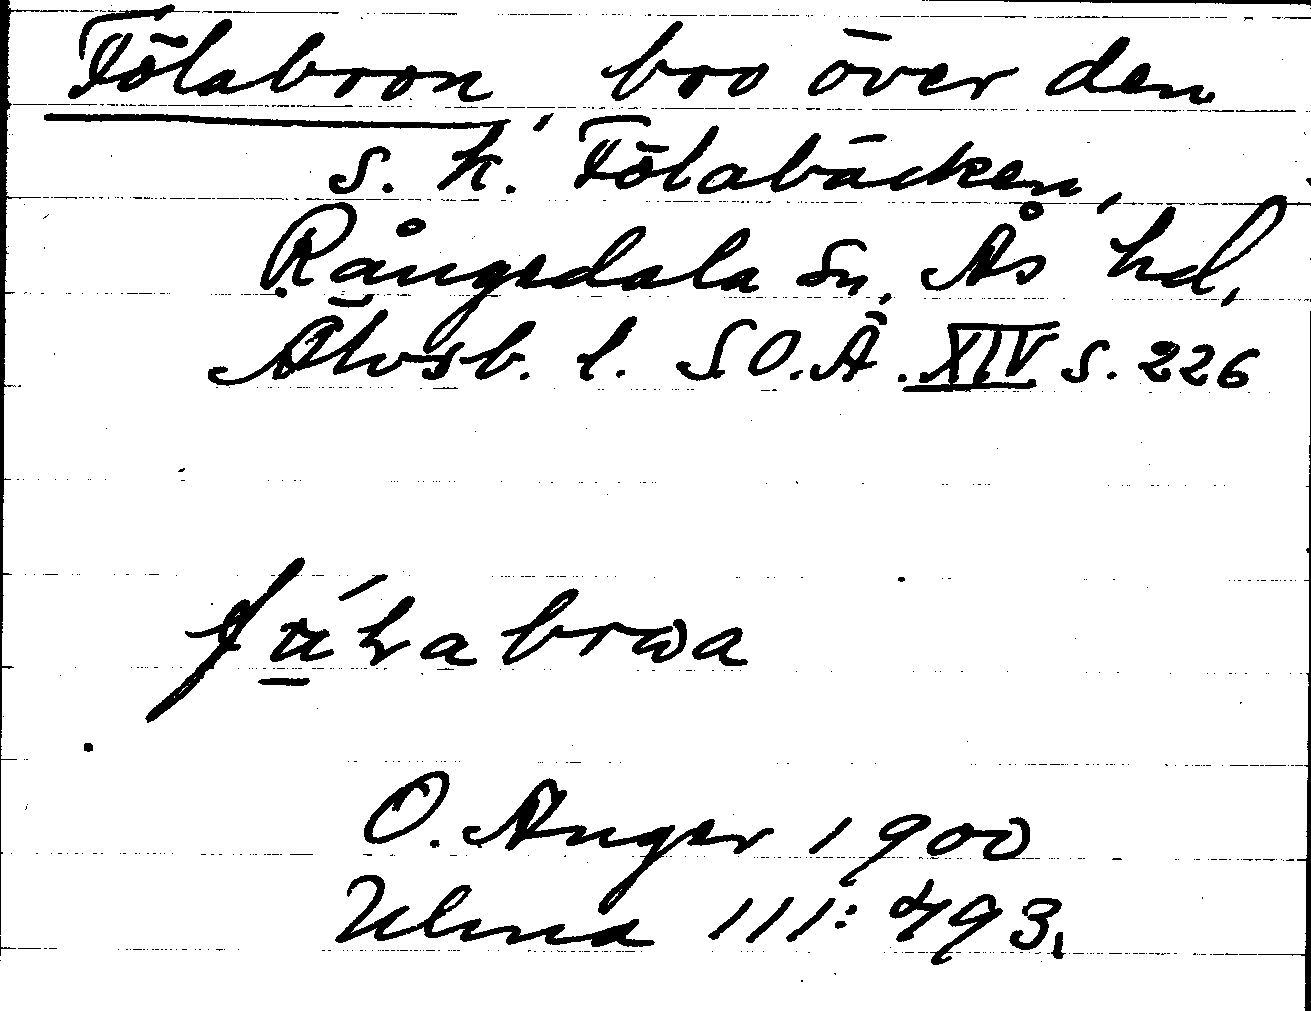 Fölabron, bro över den
s. k. Fölabäcken,
Rångedala sn, Ås hd,
Älvsb. l. SO.Ä. XIV s. 226
O. Anger 1900
Ulma 111:493.